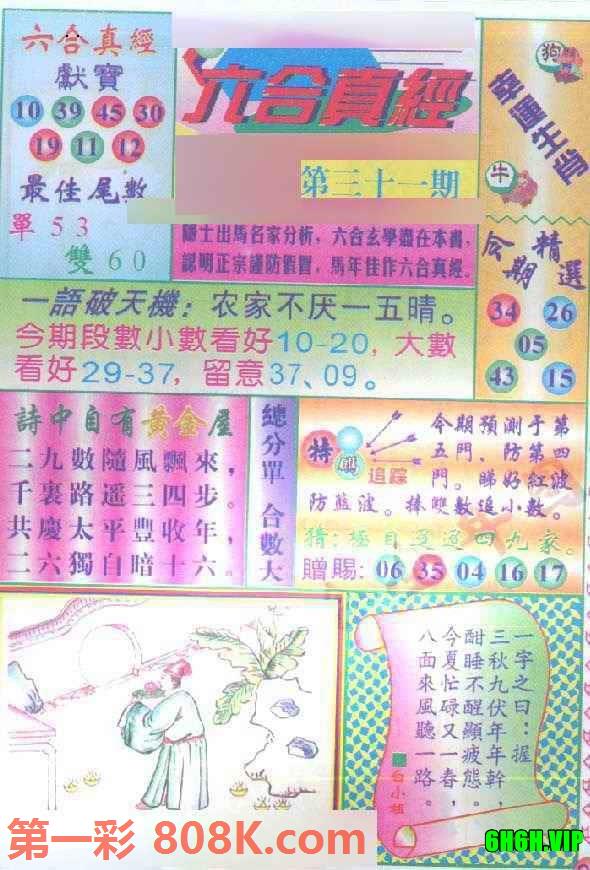 六合真經
獻寶
10 39 45 30
19 11 12
最佳尾數
單 5 3
雙 6 0
六合真經
第三十一期
士出馬名家分析，六合玄學盡在本書，
認明正宗謹防假冒，馬年佳作六合真經。
幸運生肖
狗
牛
今期精選
34 26
05
43 15
一語破天機：农家不厌一五晴。
今期段數小數看好10-20，大數
看好29-37，留意37、09。
詩中自有黃金屋
二九數隨風飄來，
千裏路遥三四步。
共慶太平豐收年，
二六獨自暗十六。
總分單 合數大
特
追踪
今期預測于第
五門、防第四
門。睇好紅波
防藍波。捧雙數追小數。
猜：極目遥遥四九家。
贈賜：06 35 04 16 17
一字之曰：握
三秋九伏年年幹，
酣睡不醒顯疲態。
今夏忙碌又一春，
八面來風聽一路。
白小姐
第一彩 808K.com
6H6H.VIP